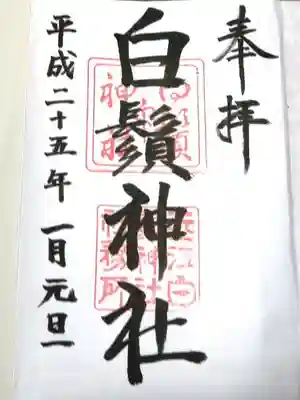 奉拝
白鬚神社
平成二十五年 一月 元旦